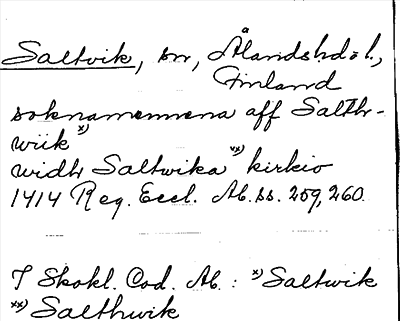 Saltvik, sn, Ålandshdöl.,
Finland
soknamennena aff Salthr-
wiik *)
widh Saltwika **) kirkio
1414 Reg. Eccl. Ab. ss. 259, 260.
I Skokl. Cod. Ab.: *) Saltwik
**) Salthwik